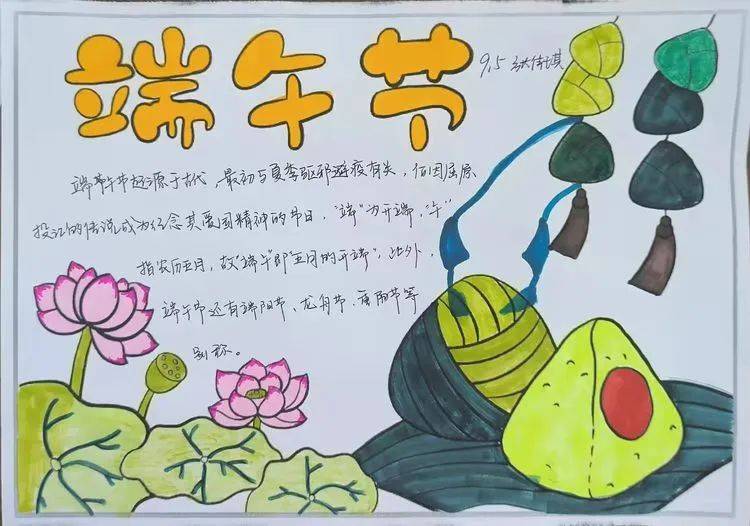 端午节
9.5
端午节起源于古代,最初与夏季驱邪避疫有关,但因屈原
投江的传说成为纪念其爱国精神的节日,"端"为开端,"午"
指农历五月,故"端午"即"五月的开端",此外,
端午节还有端阳节、龙舟节、重五节等
别称。